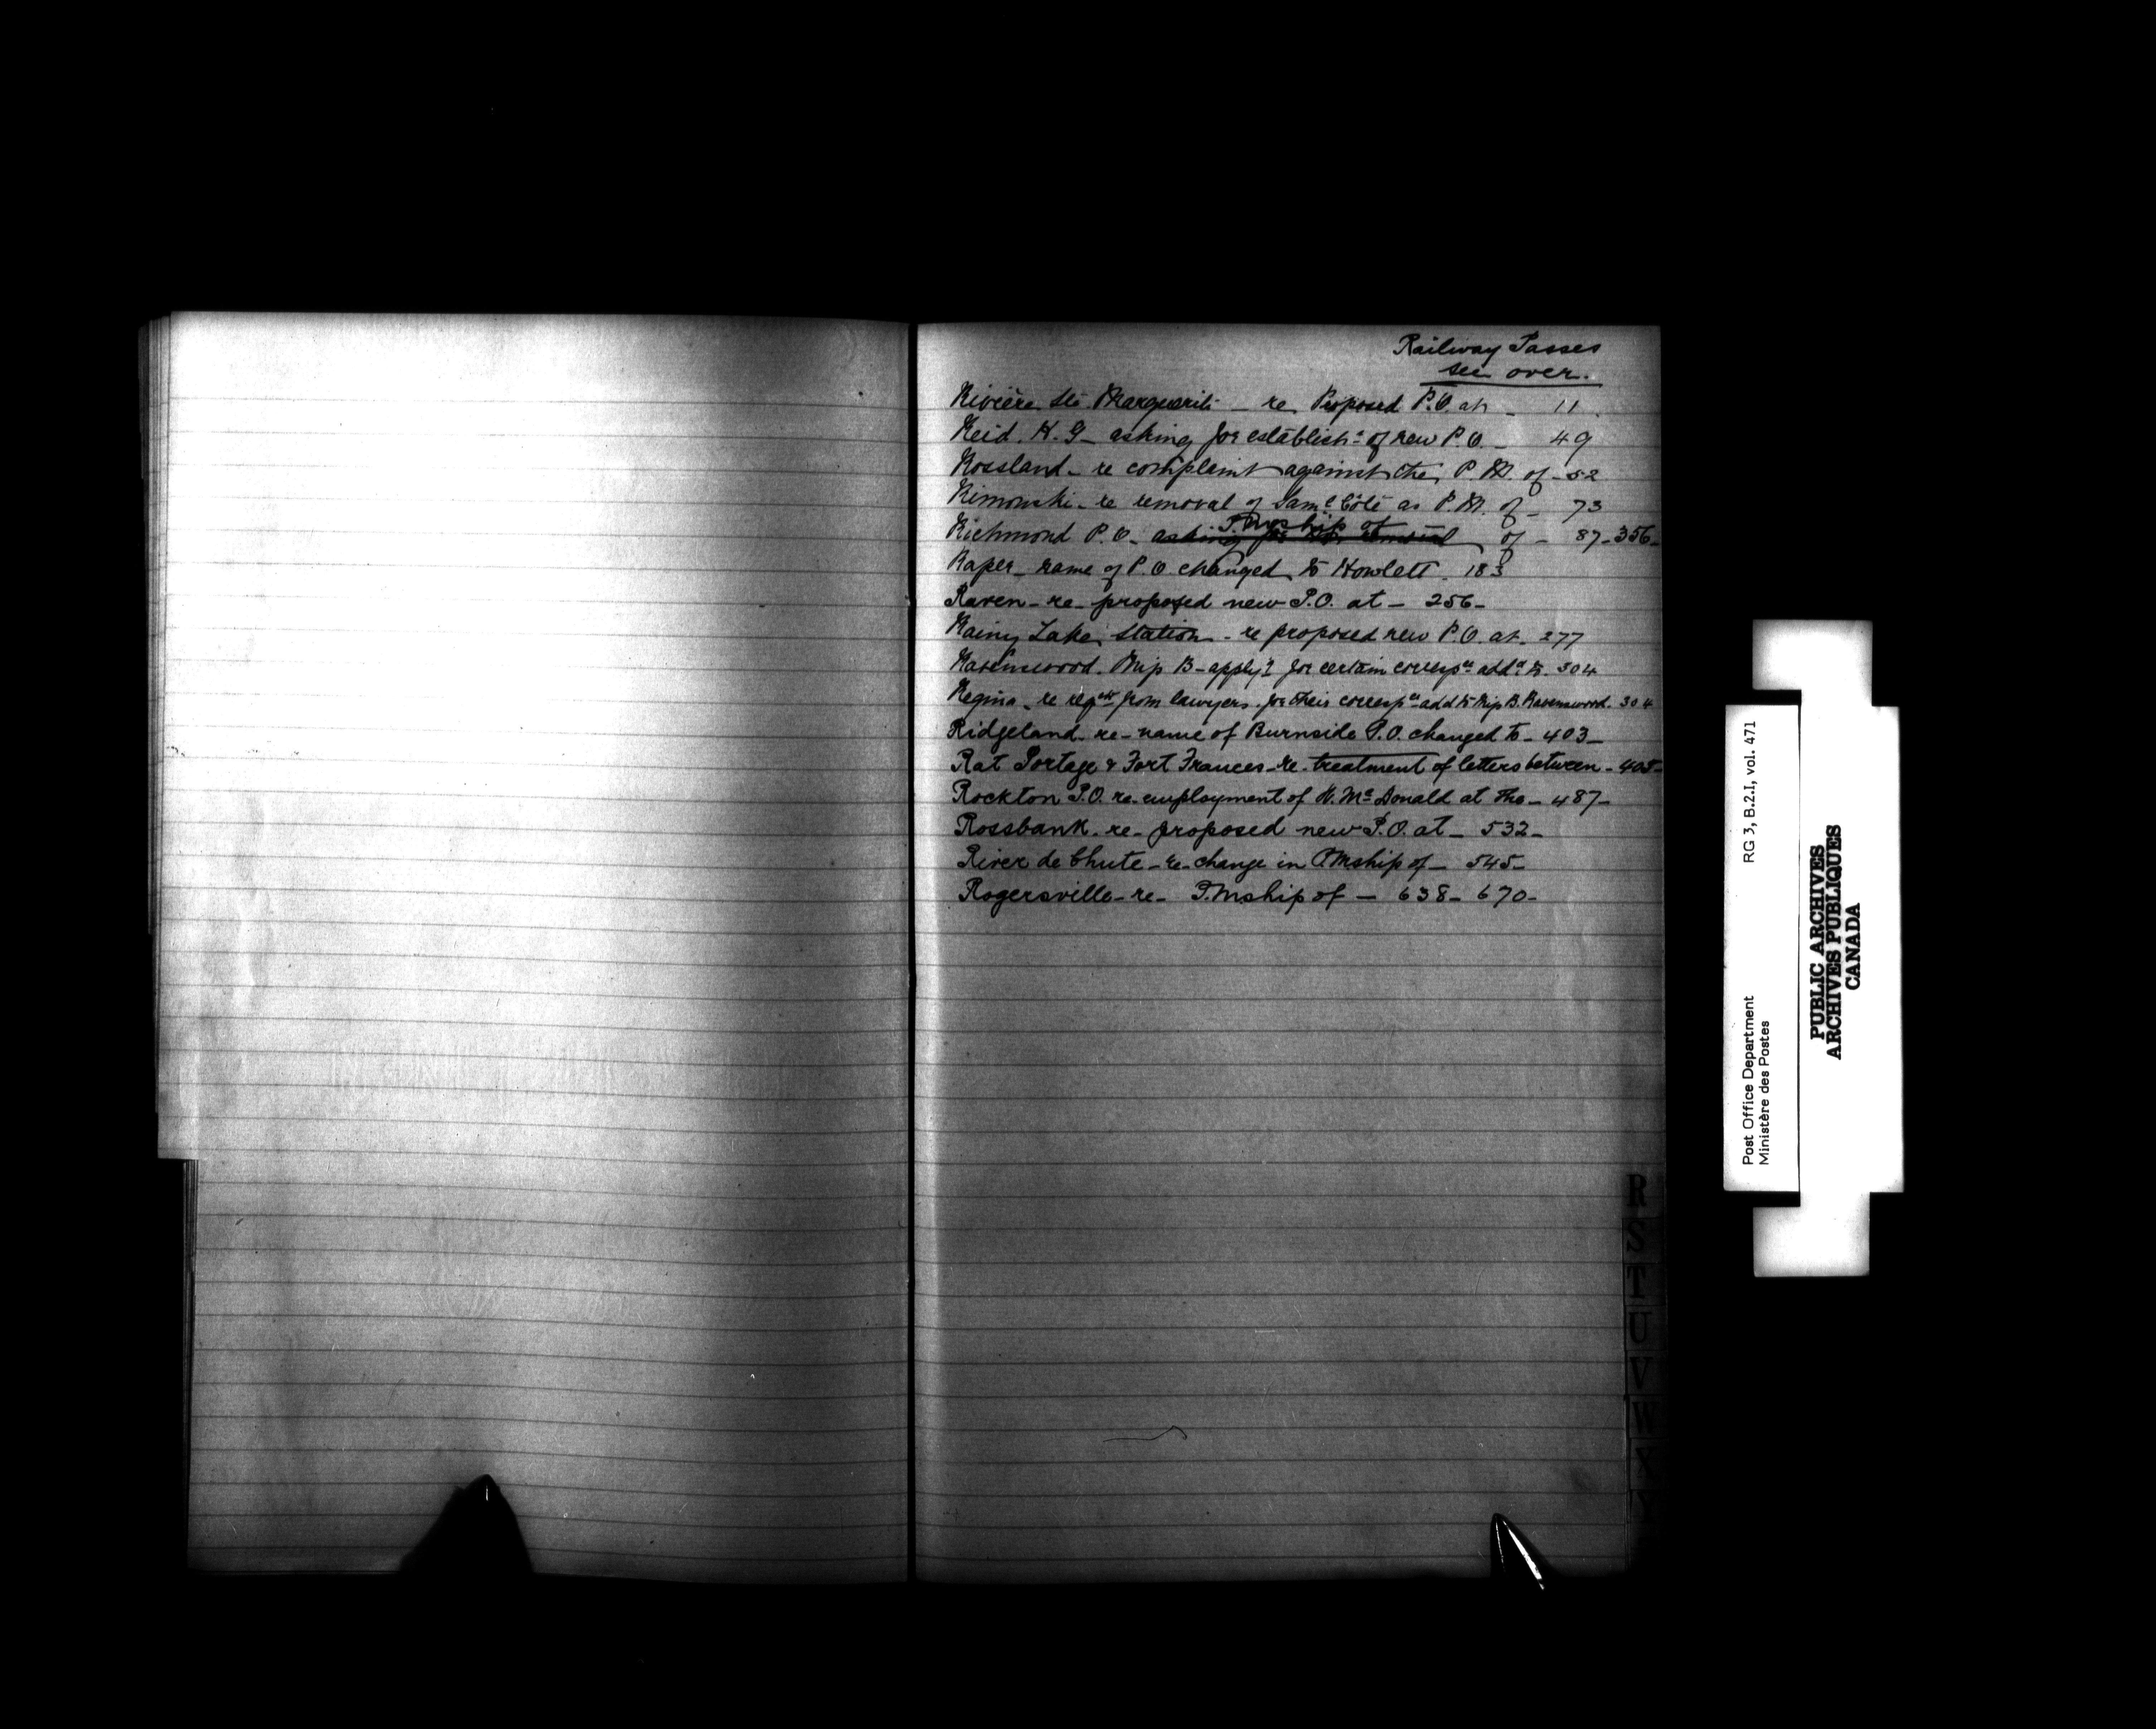 Railway Passes
see over.
Rivière Ste Marguerite - re Proposed P.O. at - 11
Reid. H. G - asking for establisht of new P.O. - 49
Rossland - re complaint against the P.M. of - 52
Rimouski - re removal of Saml Côté as P.M. of - 73
P.Mship of
Richmond P.O. - asking for the removal of - 87 - 356 -
Raper - name of P.O. changed to Howlett - 183
Raven - re - proposed new P.O. at - 256 -
Rainy Lake Station - re proposed new P.O. at - 277
Ravenswood. B - for certain to. 304
Regina - re from lawyers. for their B. Ravenswood. 304
Ridgeland - re - name of Burnside P.O. changed to - 403 -
Rat Portage & Fort Frances - re - treatment of letters between - 405 -
Rockton P.O. re - employment of McDonald at the - 487 -
Rossbank - re - proposed new P.O. at - 532 -
River de Chute - re - change in P.Mship of - 545 -
Rogersville - re - P.Mship of - 638 - 670 -
R
S
T
U
V
W
X
Y
Post Office Department
Ministère des Postes
RG 3, B.2.I, vol. 471
PUBLIC ARCHIVES
ARCHIVES PUBLIQUES
CANADA